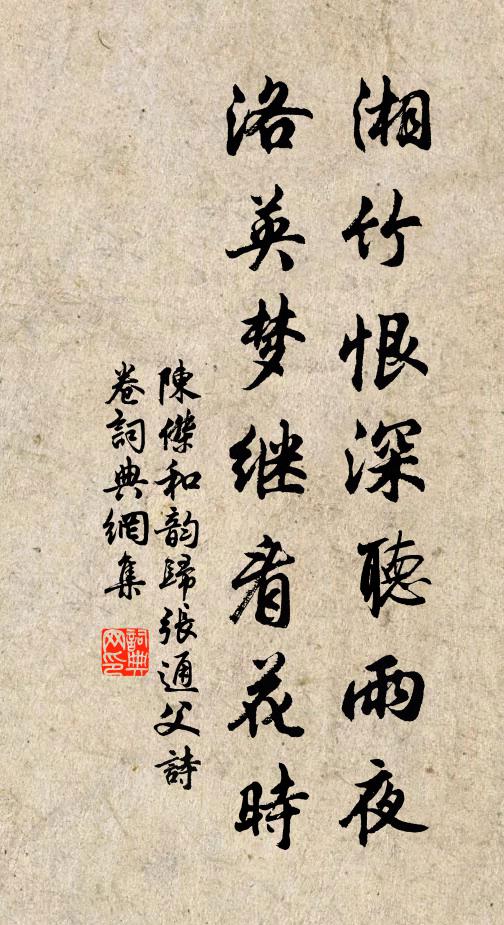 湘竹恨深聽雨夜
洛英梦继看花時
陳傑和韵歸張通父詩
卷詞典網集
詞典网印